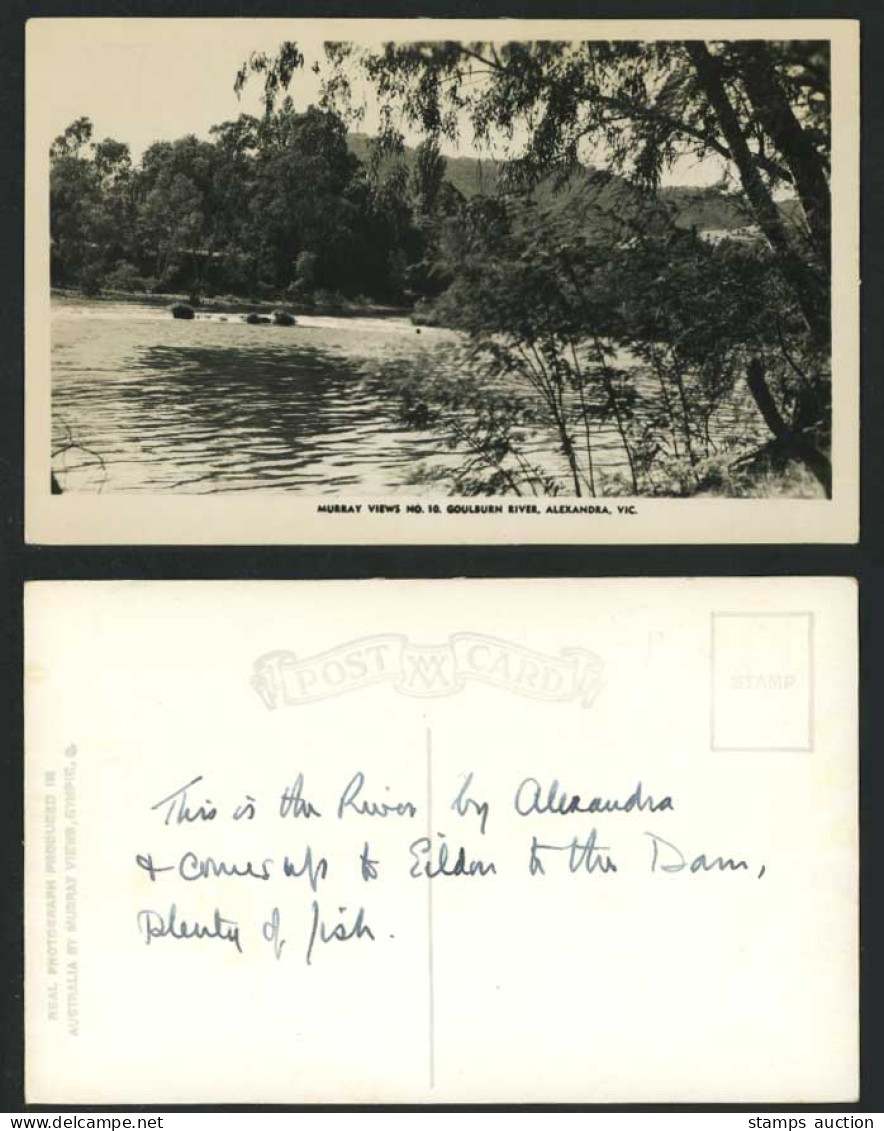 MURRAY VIEWS NO. 10. GOULBURN RIVER, ALEXANDRA, VIC.
POST CARD
STAMP
REAL PHOTOGRAPH PRODUCED IN
AUSTRALIA BY MURRAY VIEWS, GYMPIE, Q.
This is the River by Alexandra
& comes up to Eildon to the Dam,
Plenty of fish.
stamps auction